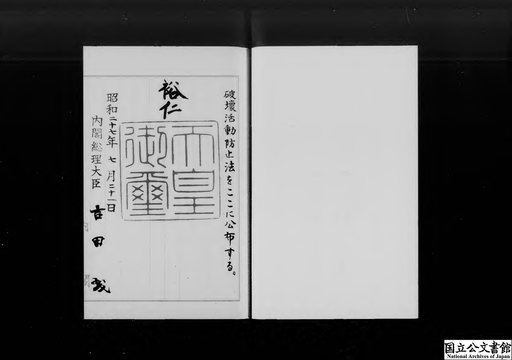 破壞活動防止法をここに公布する。
裕仁
天皇
御璽
昭和二十七年七月二十一日
内閣総理大臣 吉田茂
国立公文書館
National Archives of Japan